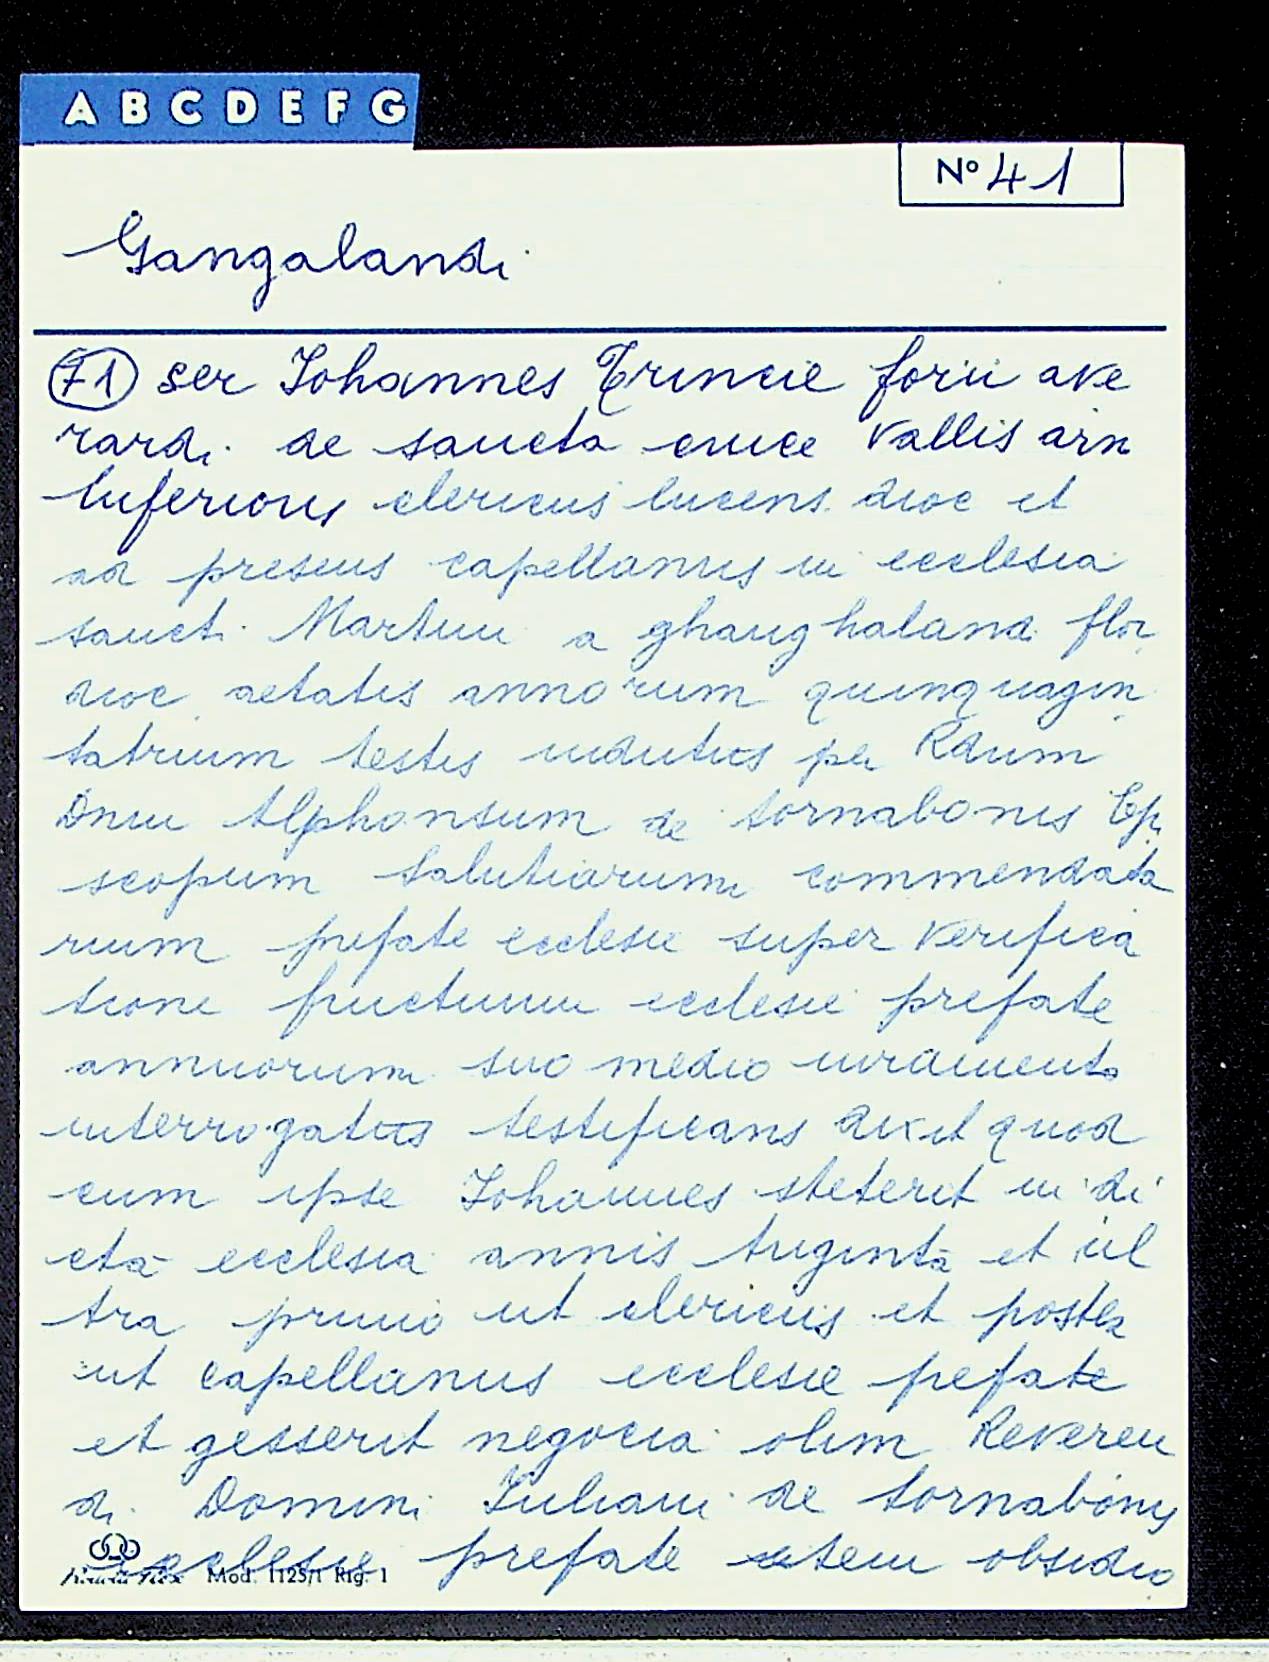 A B C D E F G
Nº 41
Gangalandi
71 ser Iohannes Trincie forii ave
rardi de sancta cruce vallis arn
Inferioris clericus lucens. dioc et
ad presens capellanus in ecclesia
sancti Martini a ghanghaland flor
dioc. aetatis annorum quinquagin
tatrium testis indutus per Rdum
Dnm Alphonsum de tornabonis Epi
scopum Salutiarum commendata
rium prefate ecclesie super verifica
tione fructuum ecclesie prefate
annuorum suo medio iuramento
interrogatus testificans dixit quod
cum ipse Iohannes steterit in di
cta ecclesia annis triginta et ul
tra primo ut clericus et postea
ut capellanus ecclesie prefate
et gesserit negocia olim Reveren
di Domini Iuliani de tornabonis
ecclesie prefate item obsidio
Mod. 1125/1 Rig. 1